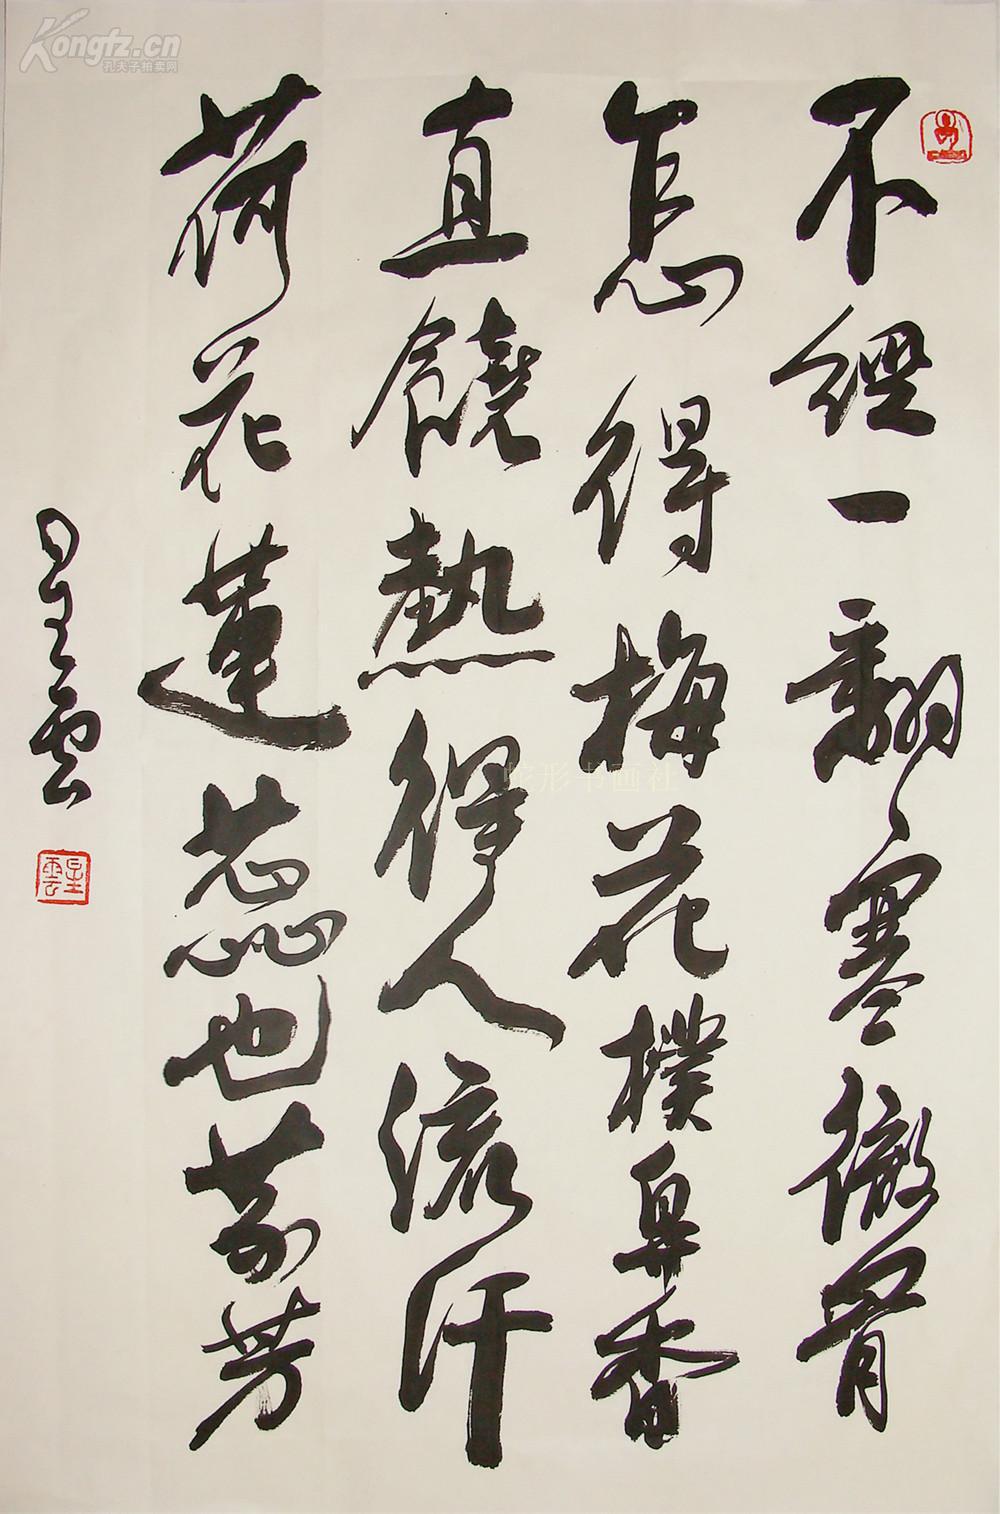 不經一翻寒徹骨
怎得梅花撲鼻香
直饒熱得人流汗
荷花蓮蕊也芬芳
星雲
星雲
Kongfz.cn
孔夫子拍卖网
蛇形书画社